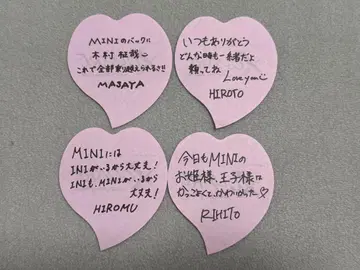 MINIのバックに
木村柾哉
これで全部乗り越えられるさ!!
MASAYA
いつもありがとう
どんな時も一緒だよ
頼ってね
Love you
HIROTO
MINIには
INIがいるから大丈夫！
INIも、MINIがいるから
大丈夫！
HIROMU
今日もMINIの
お姫様、王子様は
かっこよくて、かわいかった♡
RIHITO